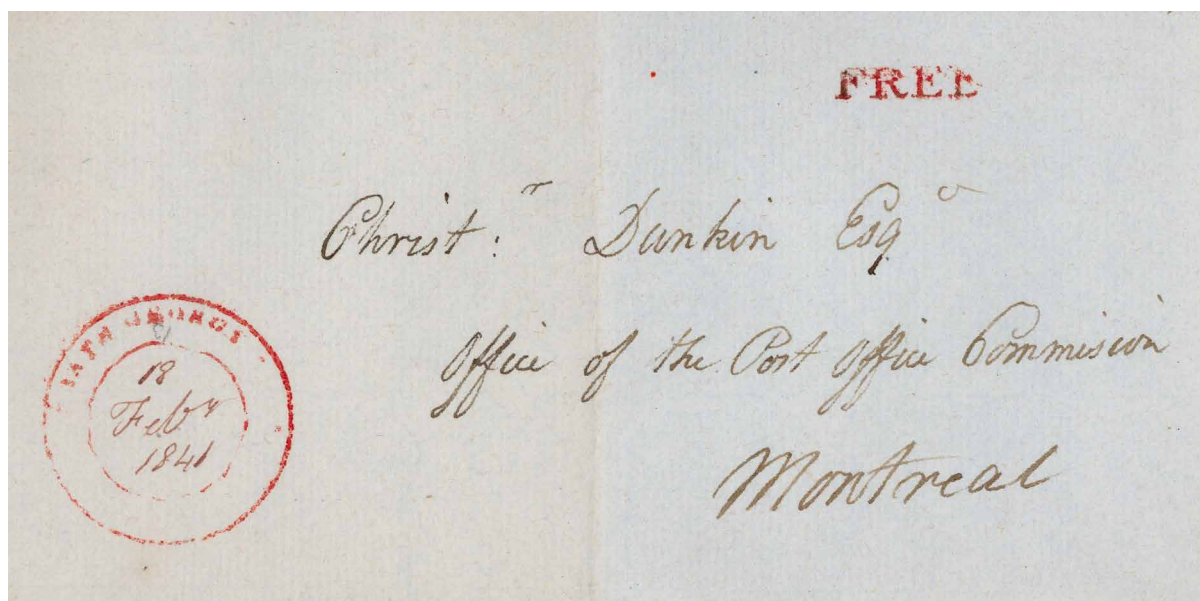 FREE
Christ:ʳ Dunkin Esqʳ
Office of the Post Office Commision
Montreal
GEORGE
18
Febʸ
1841